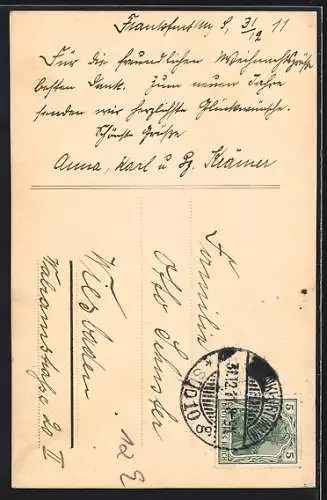 Frankfurt M, d. 31/12 11
Für die freundlichen Weihnachtsgrüße
besten Dank. Zum neuen Jahre
senden wir herzlichste Glückwünsche.
Schönste Grüße
Anna, Karl u. Krämer
Familie
Otto Schuster
Wiesbaden
Walramstraße 20 II
12 E
31.12.11
5 5